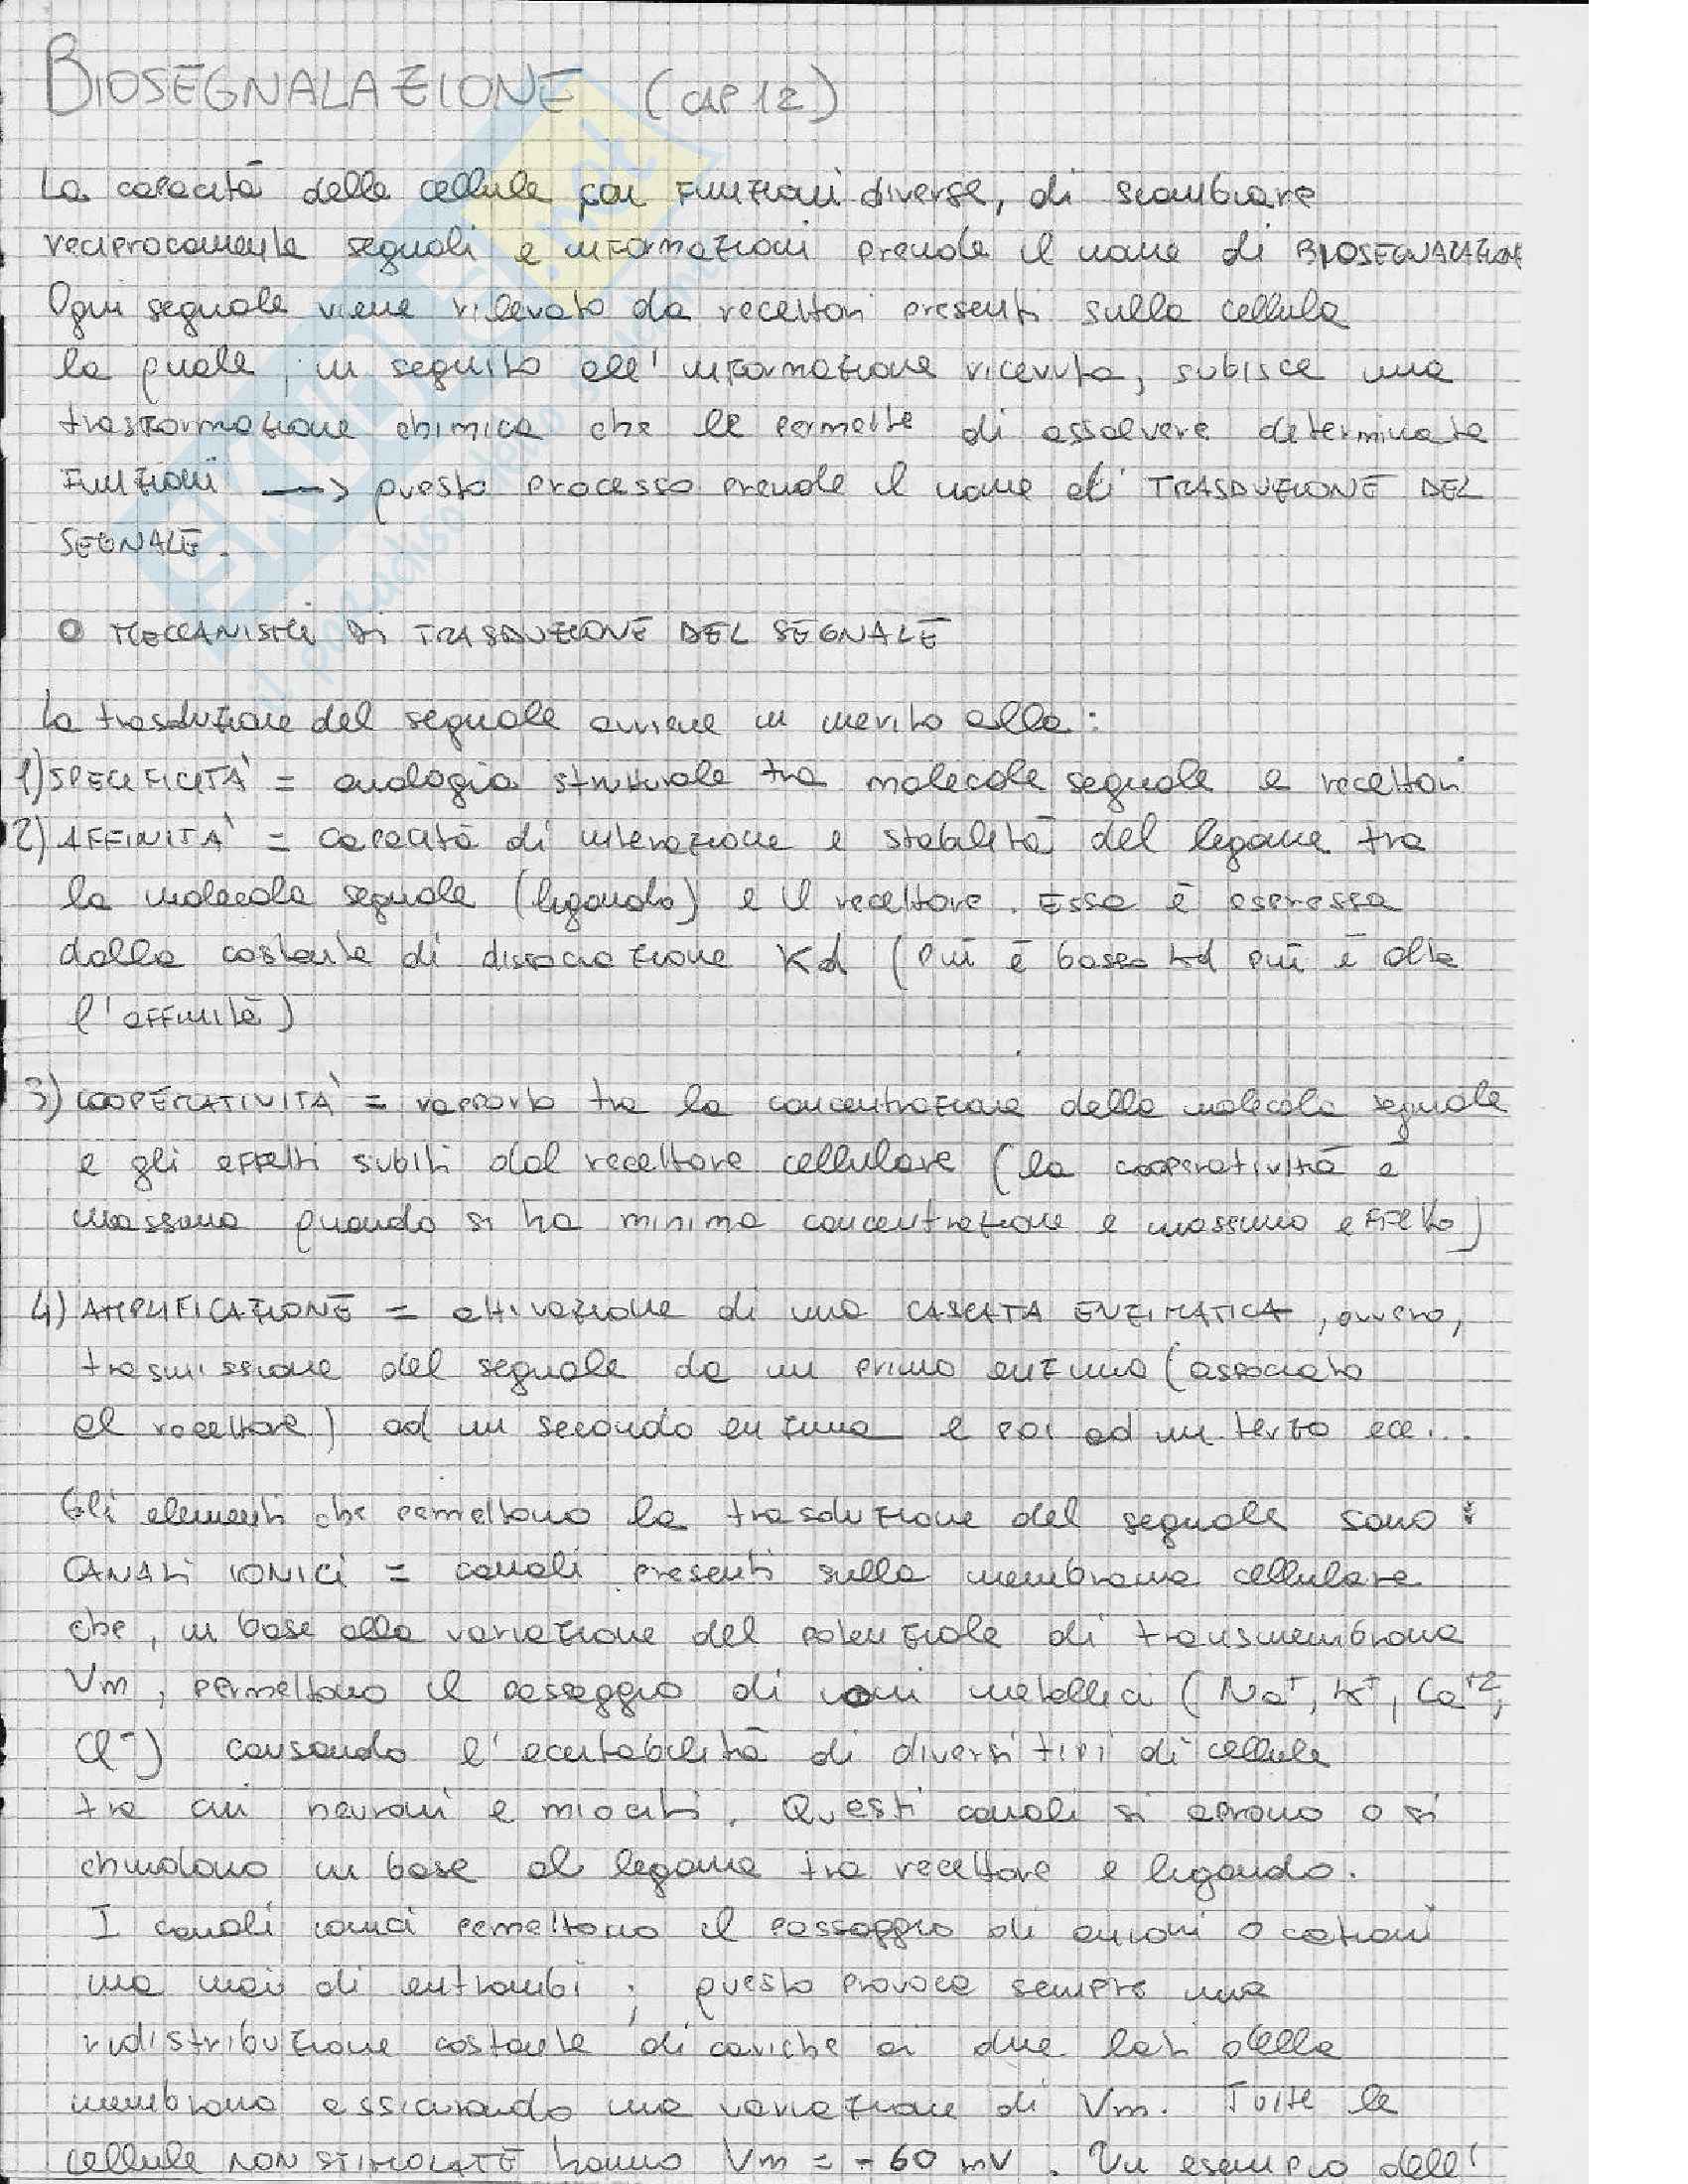 BIOSEGNALAZIONE (CAP 12)
La capacità delle cellule con funzioni diverse, di scambiare
reciprocamente segnali e informazioni prende il nome di BIOSEGNALAZIONE
Ogni segnale viene rilevato da recettori presenti sulla cellula
la quale, in seguito all'informazione ricevuta, subisce una
trasformazione chimica che le permette di assolvere determinate
funzioni —> questo processo prende il nome di TRASDUZIONE DEL
SEGNALE.
O MECCANISMI DI TRASDUZIONE DEL SEGNALE
La trasduzione del segnale avviene in merito alla:
1) SPECIFICITA' = analogia strutturale tra molecole segnale e recettori
2) AFFINITA' = capacità di interazione e stabilità del legame tra
la molecola segnale (ligando) e il recettore. Essa è espressa
dalla costante di dissociazione Kd (più è bassa Kd più è alta
l'affinità)
3) COOPERATIVITA' = rapporto tra la concentrazione della molecola segnale
e gli effetti subiti dal recettore cellulare (la cooperatività è
massima quando si ha minima concentrazione e massimo effetto)
4) AMPLIFICAZIONE = attivazione di una CASCATA ENZIMATICA, ovvero,
trasmissione del segnale da un primo enzima (associato
al recettore) ad un secondo enzima e poi ad un terzo ecc...
Gli elementi che permettono la trasduzione del segnale sono:
CANALI IONICI = canali presenti sulla membrana cellulare
che, in base alla variazione del potenziale di transmembrana
Vm, permettono il passaggio di ioni metallici (Na⁺, K⁺, Ca⁺²,
Cl⁻) causando l'eccitabilità di diversi tipi di cellule
tra cui neuroni e miociti. Questi canali si aprono o si
chiudono in base al legame tra recettore e ligando.
I canali ionici permettono il passaggio di anioni o cationi
ma mai di entrambi; questo provoca sempre una
ridistribuzione costante di cariche ai due lati della
membrana assicurando una variazione di Vm. Tutte le
cellule NON STIMOLATE hanno Vm = -60 mV. Un esempio dell'
SKUOLA.net
il paradiso dello studente